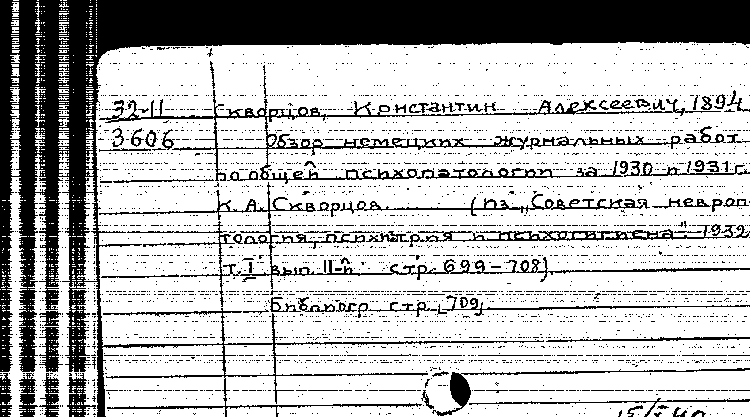 32-11 Скворцов, Константин Алексеевич, 1894
3606 Обзор немецких журнальных работ
по общей психопатологии за 1930 и 1931 г.
К. А. Скворцов. (Из „Советская невроп-
тология, психиатрия и психогигиена" 1932
т. I вып. 11-й стр. 699-708).
Библиогр стр. 709
15/I 40